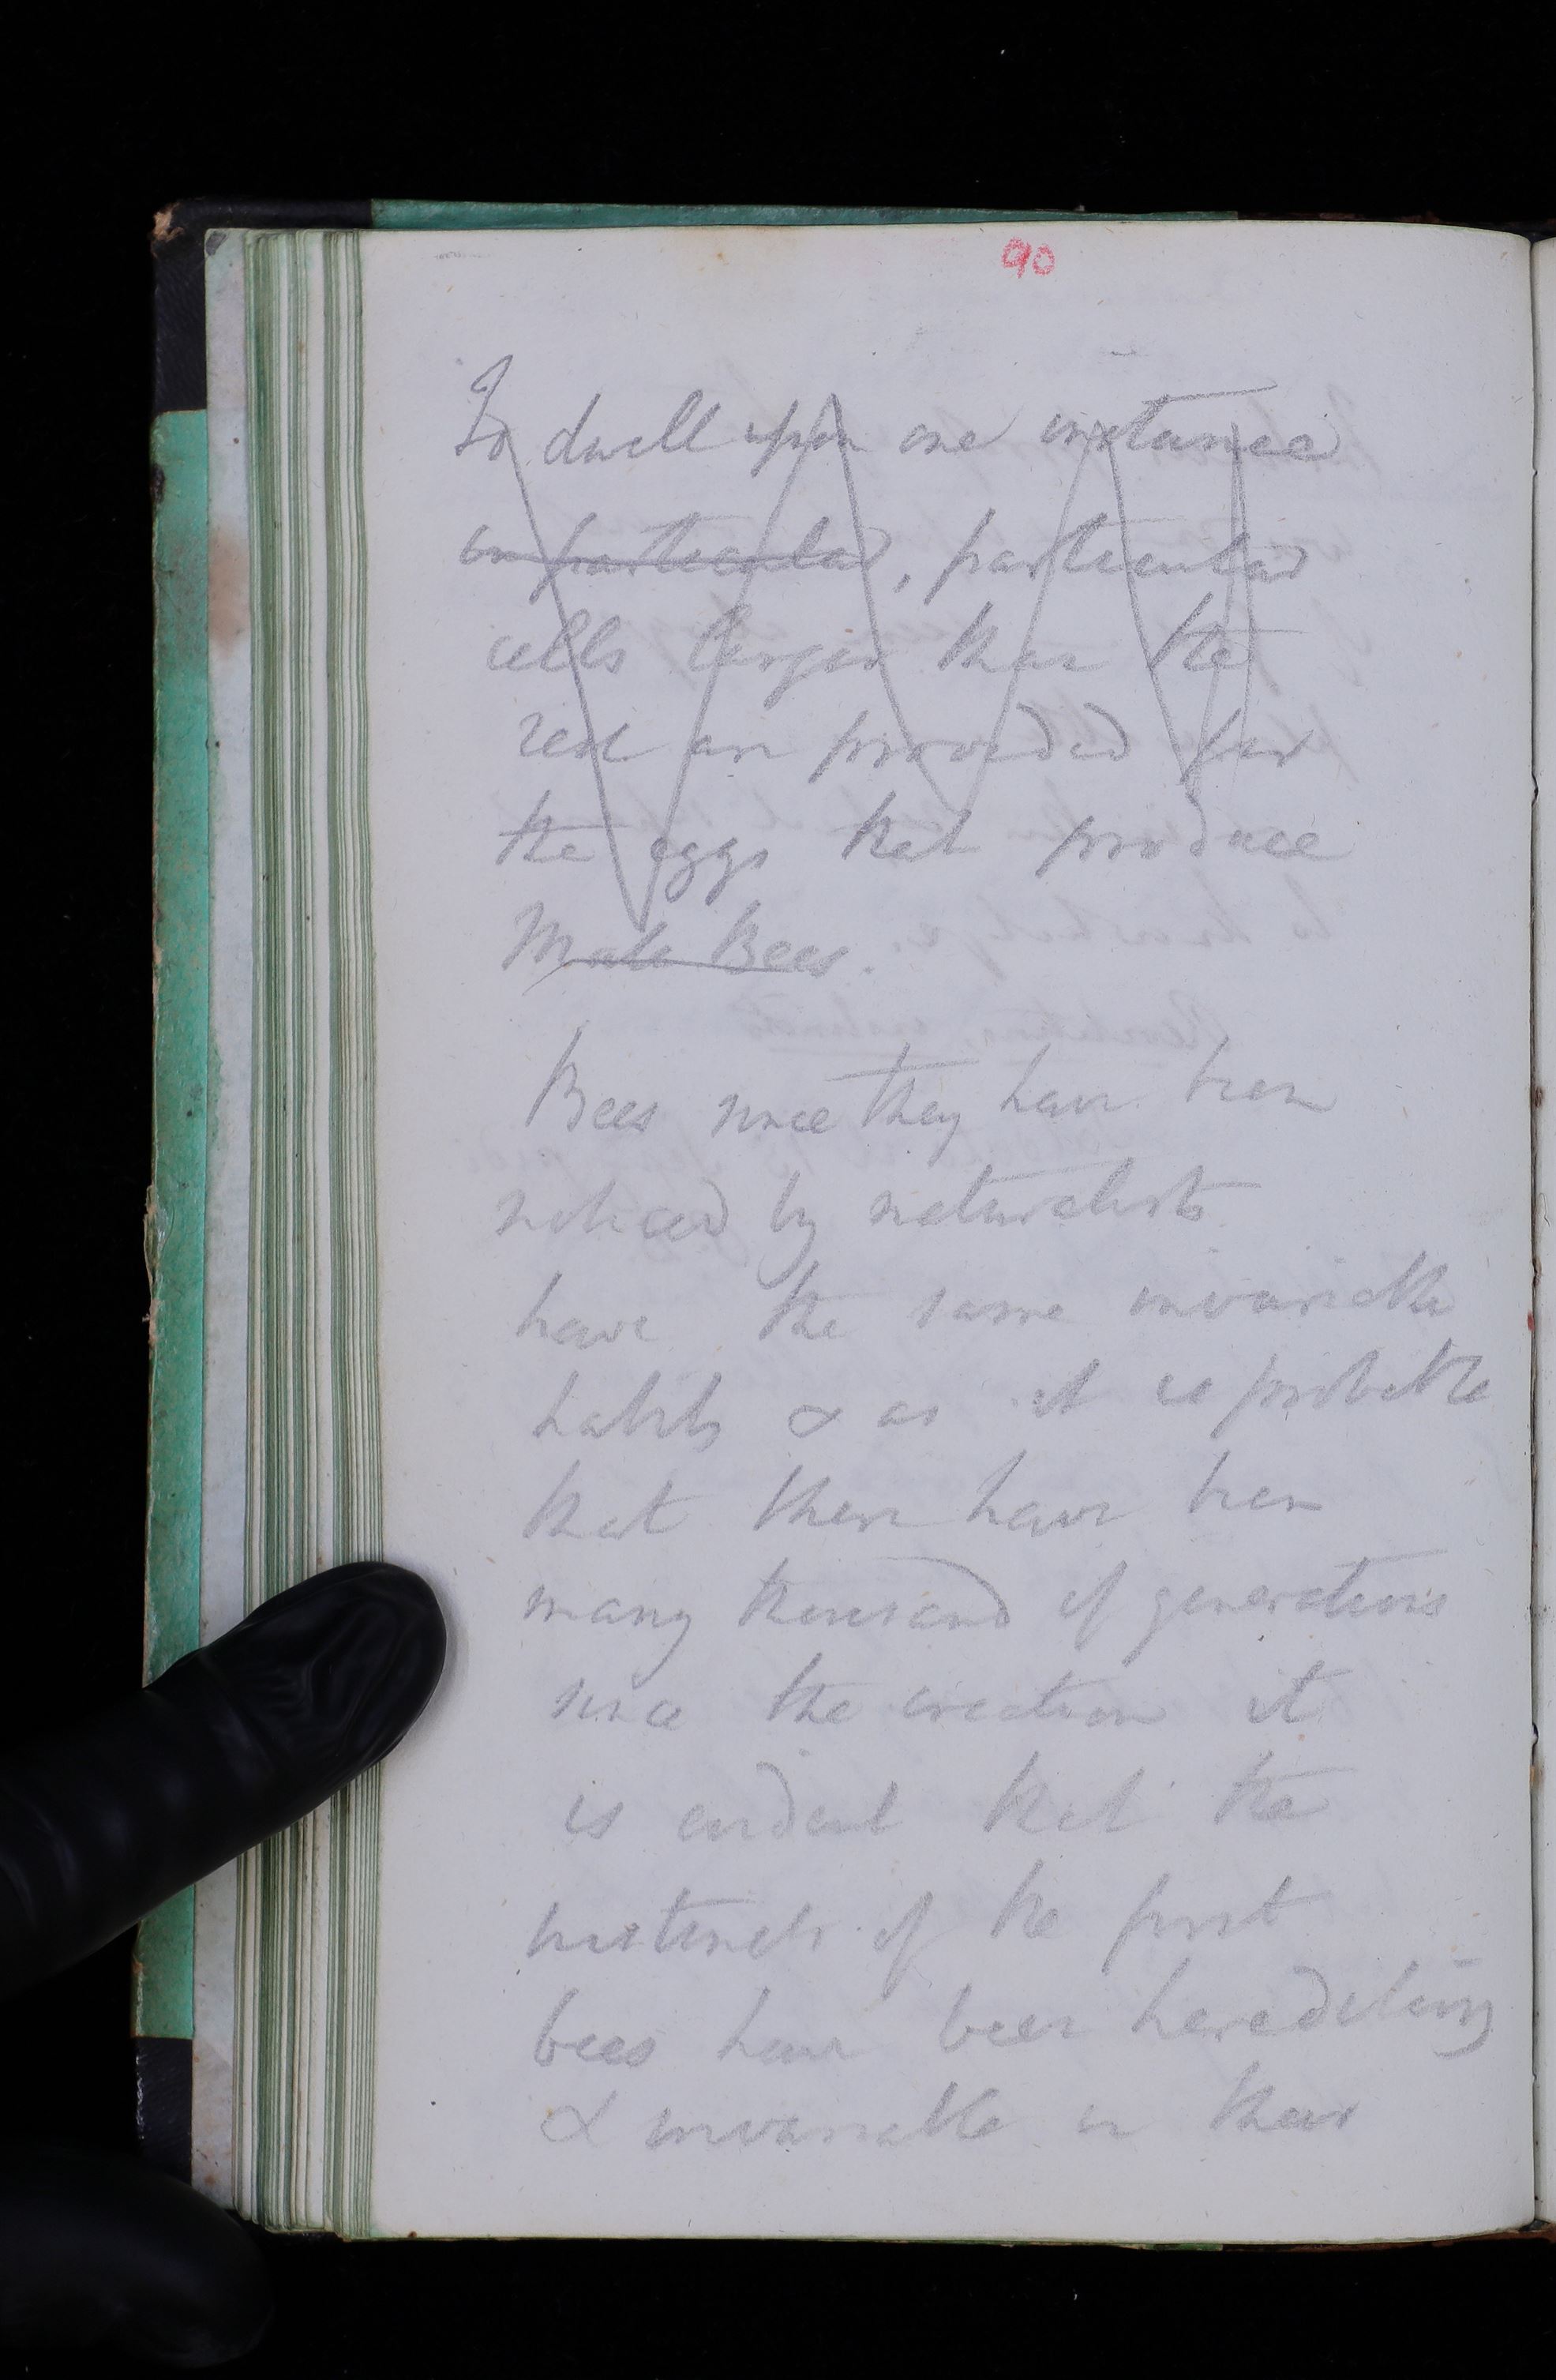 90
To dwell upon one instance
in particular, particular
cells larger than the
rest are provided for
the eggs that produce
Male Bees.
Bees since they have been
noticed by naturalists
have the same invariable
habits & as it is probable
that there have been
many thousand of generations
since the creation it
is evident that the
instincts of the first
bees have been hereditary
& invariable in their